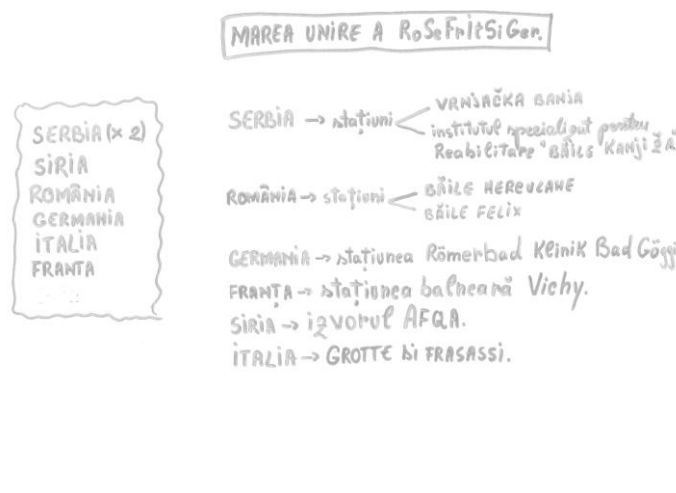 MAREA UNIRE A RoSeFritSiGer.
SERBIA (x 2)
SIRIA
ROMÂNIA
GERMANIA
ITALIA
FRANTA
SERBIA → stațiuni
VRNJAČKA BANJA
institutul specializat pentru
Reabilitare "BĂILE KANJI
ROMÂNIA → stațiuni
BĂILE HERCULANE
BĂILE FELIX
GERMANIA → stațiunea Römerbad Klinik Bad
FRANȚA → stațiunea balneară Vichy.
SIRIA → izvorul AFQA.
ITALIA → GROTTE DI FRASASSI.